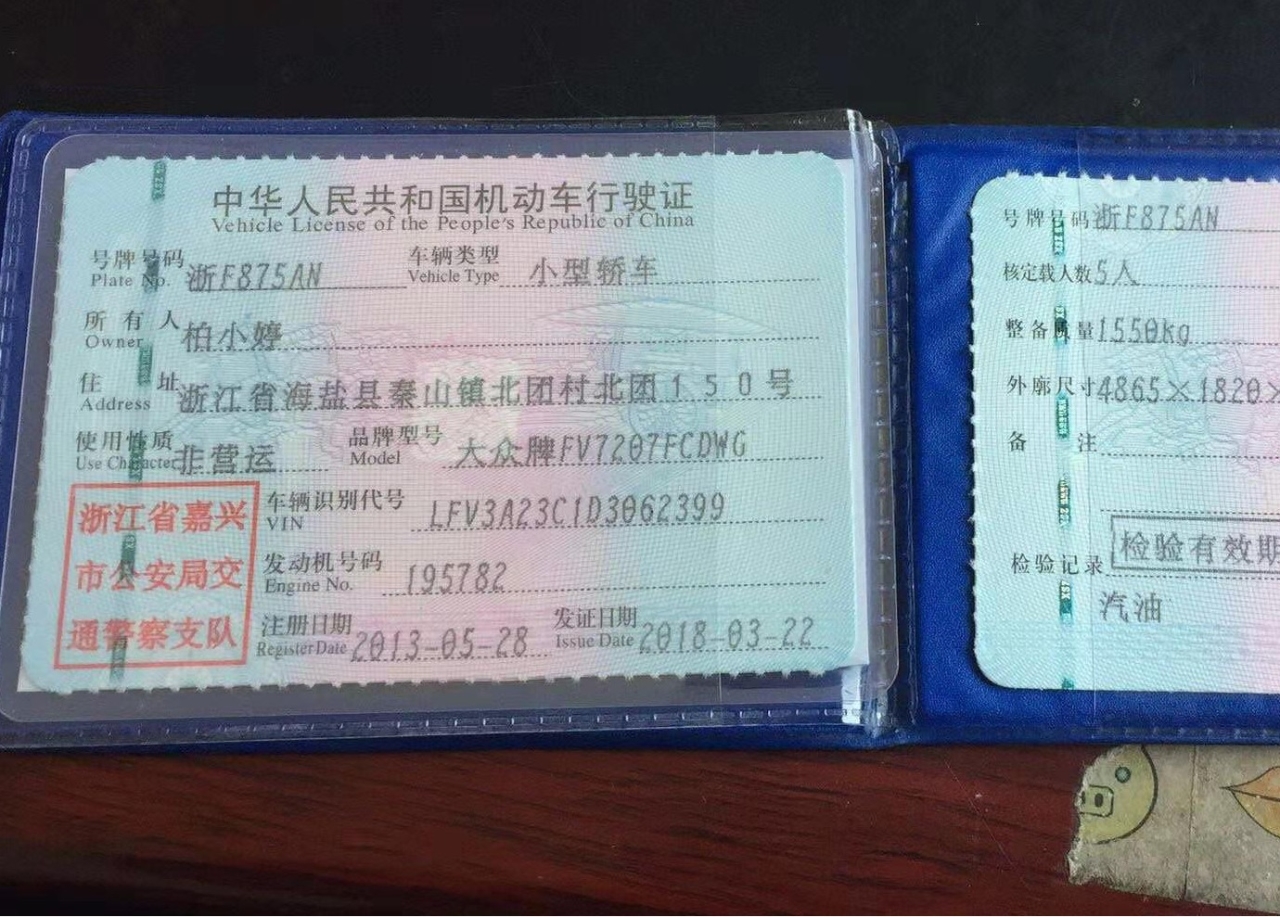 中华人民共和国机动车行驶证
Vehicle License of the People's Republic of China
号牌号码 浙F875AN 车辆类型 小型轿车
Plate No. Vehicle Type
所有人 柏小婷
Owner
住址 浙江省海盐县秦山镇北团村北团150号
Address
使用性质 非营运 品牌型号 大众牌FV7207FCDWG
Use Character Model
浙江省嘉兴
市公安局交
通警察支队
车辆识别代号 LFV3A23C1D3062399
VIN
发动机号码 195782
Engine No.
注册日期 2013-05-28 发证日期 2018-03-22
Register Date Issue Date
号牌号码 浙F875AN
核定载人数 5人
整备质量 1550kg
外廓尺寸 4865×1820×
备注
检验有效期
检验记录
汽油